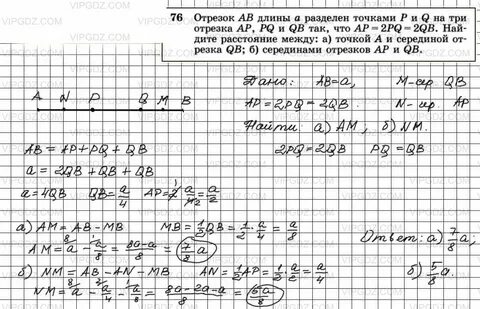 76 Отрезок AB длины a разделен точками P и Q на три
отрезка AP, PQ и QB так, что AP = 2PQ = 2QB. Най-
дите расстояние между: а) точкой A и серединой от-
резка QB; б) серединами отрезков AP и QB.
Дано: AB=a, M-ср. QB
AP=2PQ=2QB. N-ср. AP
Найти: а) AM, б) NM.
2PQ=2QB PQ=QB
A N P Q M B
AB = AP+PQ+QB
a = 2QB+QB+QB
a=4QB QB=a/4 AP=2·a/4=a/2
а) AM = AB-MB MB=1/2QB=1/2·a/4=a/8
AM = a - a/8 = 8a-a/8 = 7/8 a
б) NM = AB-AN-MB AN=1/2AP=1/2·a/2=a/4
NM = a - a/4 - a/8 = 8a-2a-a/8 = 5a/8
Ответ: а) 7/8 a;
б) 5/8 a.